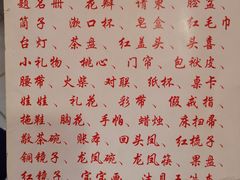 题名册、花瓣、请柬、脸盆
筒子、漱口杯、皂盒、红毛巾
台灯、茶盘、红盖头、头喜、
小礼物、桃心、门帘、包袱皮
腰带、火柴、对联、纸杯、桌卡
娃娃、礼花、彩带、假戒指、
拖鞋、胸花、手帕、蜡烛、床扫帚
敬茶碗、账本、回头凤、红梳子
铜镜子、龙凤碗、龙凤筷、果盘